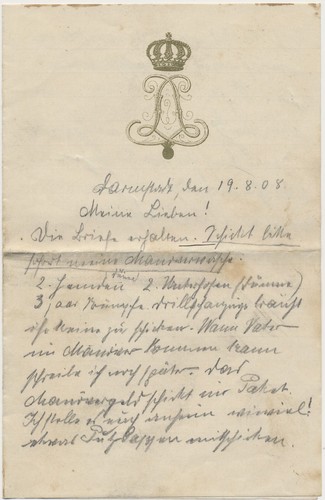 Darmstadt, den 19.8.08.
Meine Lieben!
Die Briefe erhalten. Schickt bitte
sofort meine Manöverwäsche.
2. Hemden dünn 2. Unterhosen (dünne)
3 Paar Strümpfe. Drillichanzüge braucht
ihr keine zu schicken. Wann Vater
im Manöver kommen kann
schreibe ich noch später. Das
Manövergeld schickt im Paket.
Ich stelle es euch anheim wieviel!
etwas Putzlappen mitschicken.